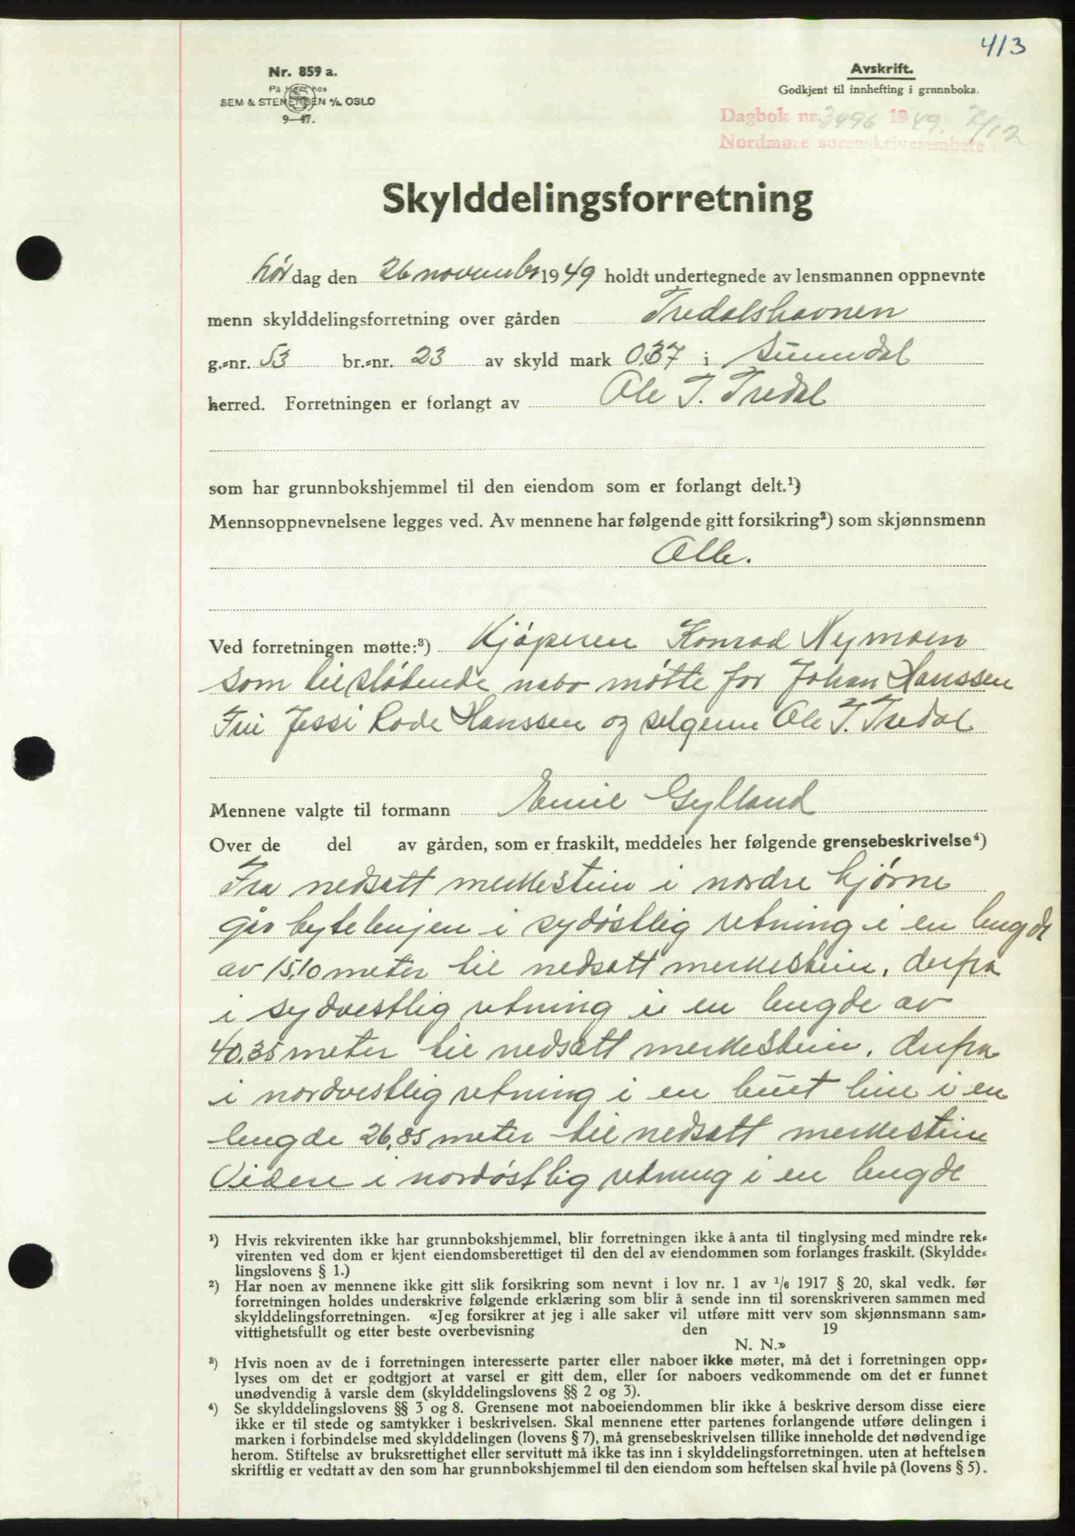 413
Nr. 859 a.
På lager hos
SEM & STENERSEN A/S. OSLO
9—47.
Avskrift.
Godkjent til innhefting i grunnboka.
Dagbok nr. 3496 1949. 2/12
Nordmøre sorenskriverembete
Skylddelingsforretning
Lør dag den 26 november 1949 holdt undertegnede av lensmannen oppnevnte
menn skylddelingsforretning over gården Tredalshavnen
g.-nr. 53 br.-nr. 23 av skyld mark 0.37 i Sunndal
herred. Forretningen er forlangt av Ole T. Tredal
som har grunnbokshjemmel til den eiendom som er forlangt delt.¹)
Mennsoppnevnelsene legges ved. Av mennene har følgende gitt forsikring²) som skjønnsmenn
Alle.
Ved forretningen møtte:³) Kjøperen Konrad Nymoen
som tilstøtende nabo møtte for Johan Hanssen
Fru Jessi Rode Hanssen og selgeren Ole T. Tredal
Mennene valgte til formann Emil Gylland
Over de del av gården, som er fraskilt, meddeles her følgende grensebeskrivelse⁴)
Fra nedsatt merkestein i nordre hjørne
går bytelinjen i sydøstlig retning i en lengde
av 15,10 meter til nedsatt merkestein, derfra
i sydvestlig retning i en lengde av
40,35 meter til nedsatt merkestein, derfra
i nordvestlig retning i en buet linie i en
lengde 26,85 meter til nedsatt merkestein
Videre i nordøstlig retning i en lengde
¹) Hvis rekvirenten ikke har grunnbokshjemmel, blir forretningen ikke å anta til tinglysing med mindre rek-
virenten ved dom er kjent eiendomsberettiget til den del av eiendommen som forlanges fraskilt. (Skyldde-
lingslovens § 1.)
²) Har noen av mennene ikke gitt slik forsikring som nevnt i lov nr. 1 av 1/6 1917 § 20, skal vedk. før
forretningen holdes underskrive følgende erklæring som blir å sende inn til sorenskriveren sammen med
skylddelingsforretningen. «Jeg forsikrer at jeg i alle saker vil utføre mitt verv som skjønnsmann sam-
vittighetsfullt og etter beste overbevisning den 19
N. N.»
³) Hvis noen av de i forretningen interesserte parter eller naboer ikke møter, må det i forretningen opp-
lyses om det er godtgjort at varsel er gitt dem, eller for naboers vedkommende om det er funnet
unødvendig å varsle dem (skylddelingslovens §§ 2 og 3).
⁴) Se skylddelingslovens §§ 3 og 8. Grensene mot naboeiendommen blir ikke å beskrive dersom disse eiere
ikke er til stede og samtykker i beskrivelsen. Skal mennene etter partenes forlangende utføre delingen i
marken i forbindelse med skylddelingen (lovens § 7), må grensebeskrivelsen tillike inneholde det nødvendige
herom. Stiftelse av bruksrettighet eller servitutt må ikke tas inn i skylddelingsforretningen. uten at heftelsen
skriftlig er vedtatt av den som har grunnbokshjemmel til den eiendom som heftelsen skal hvile på (lovens § 5).